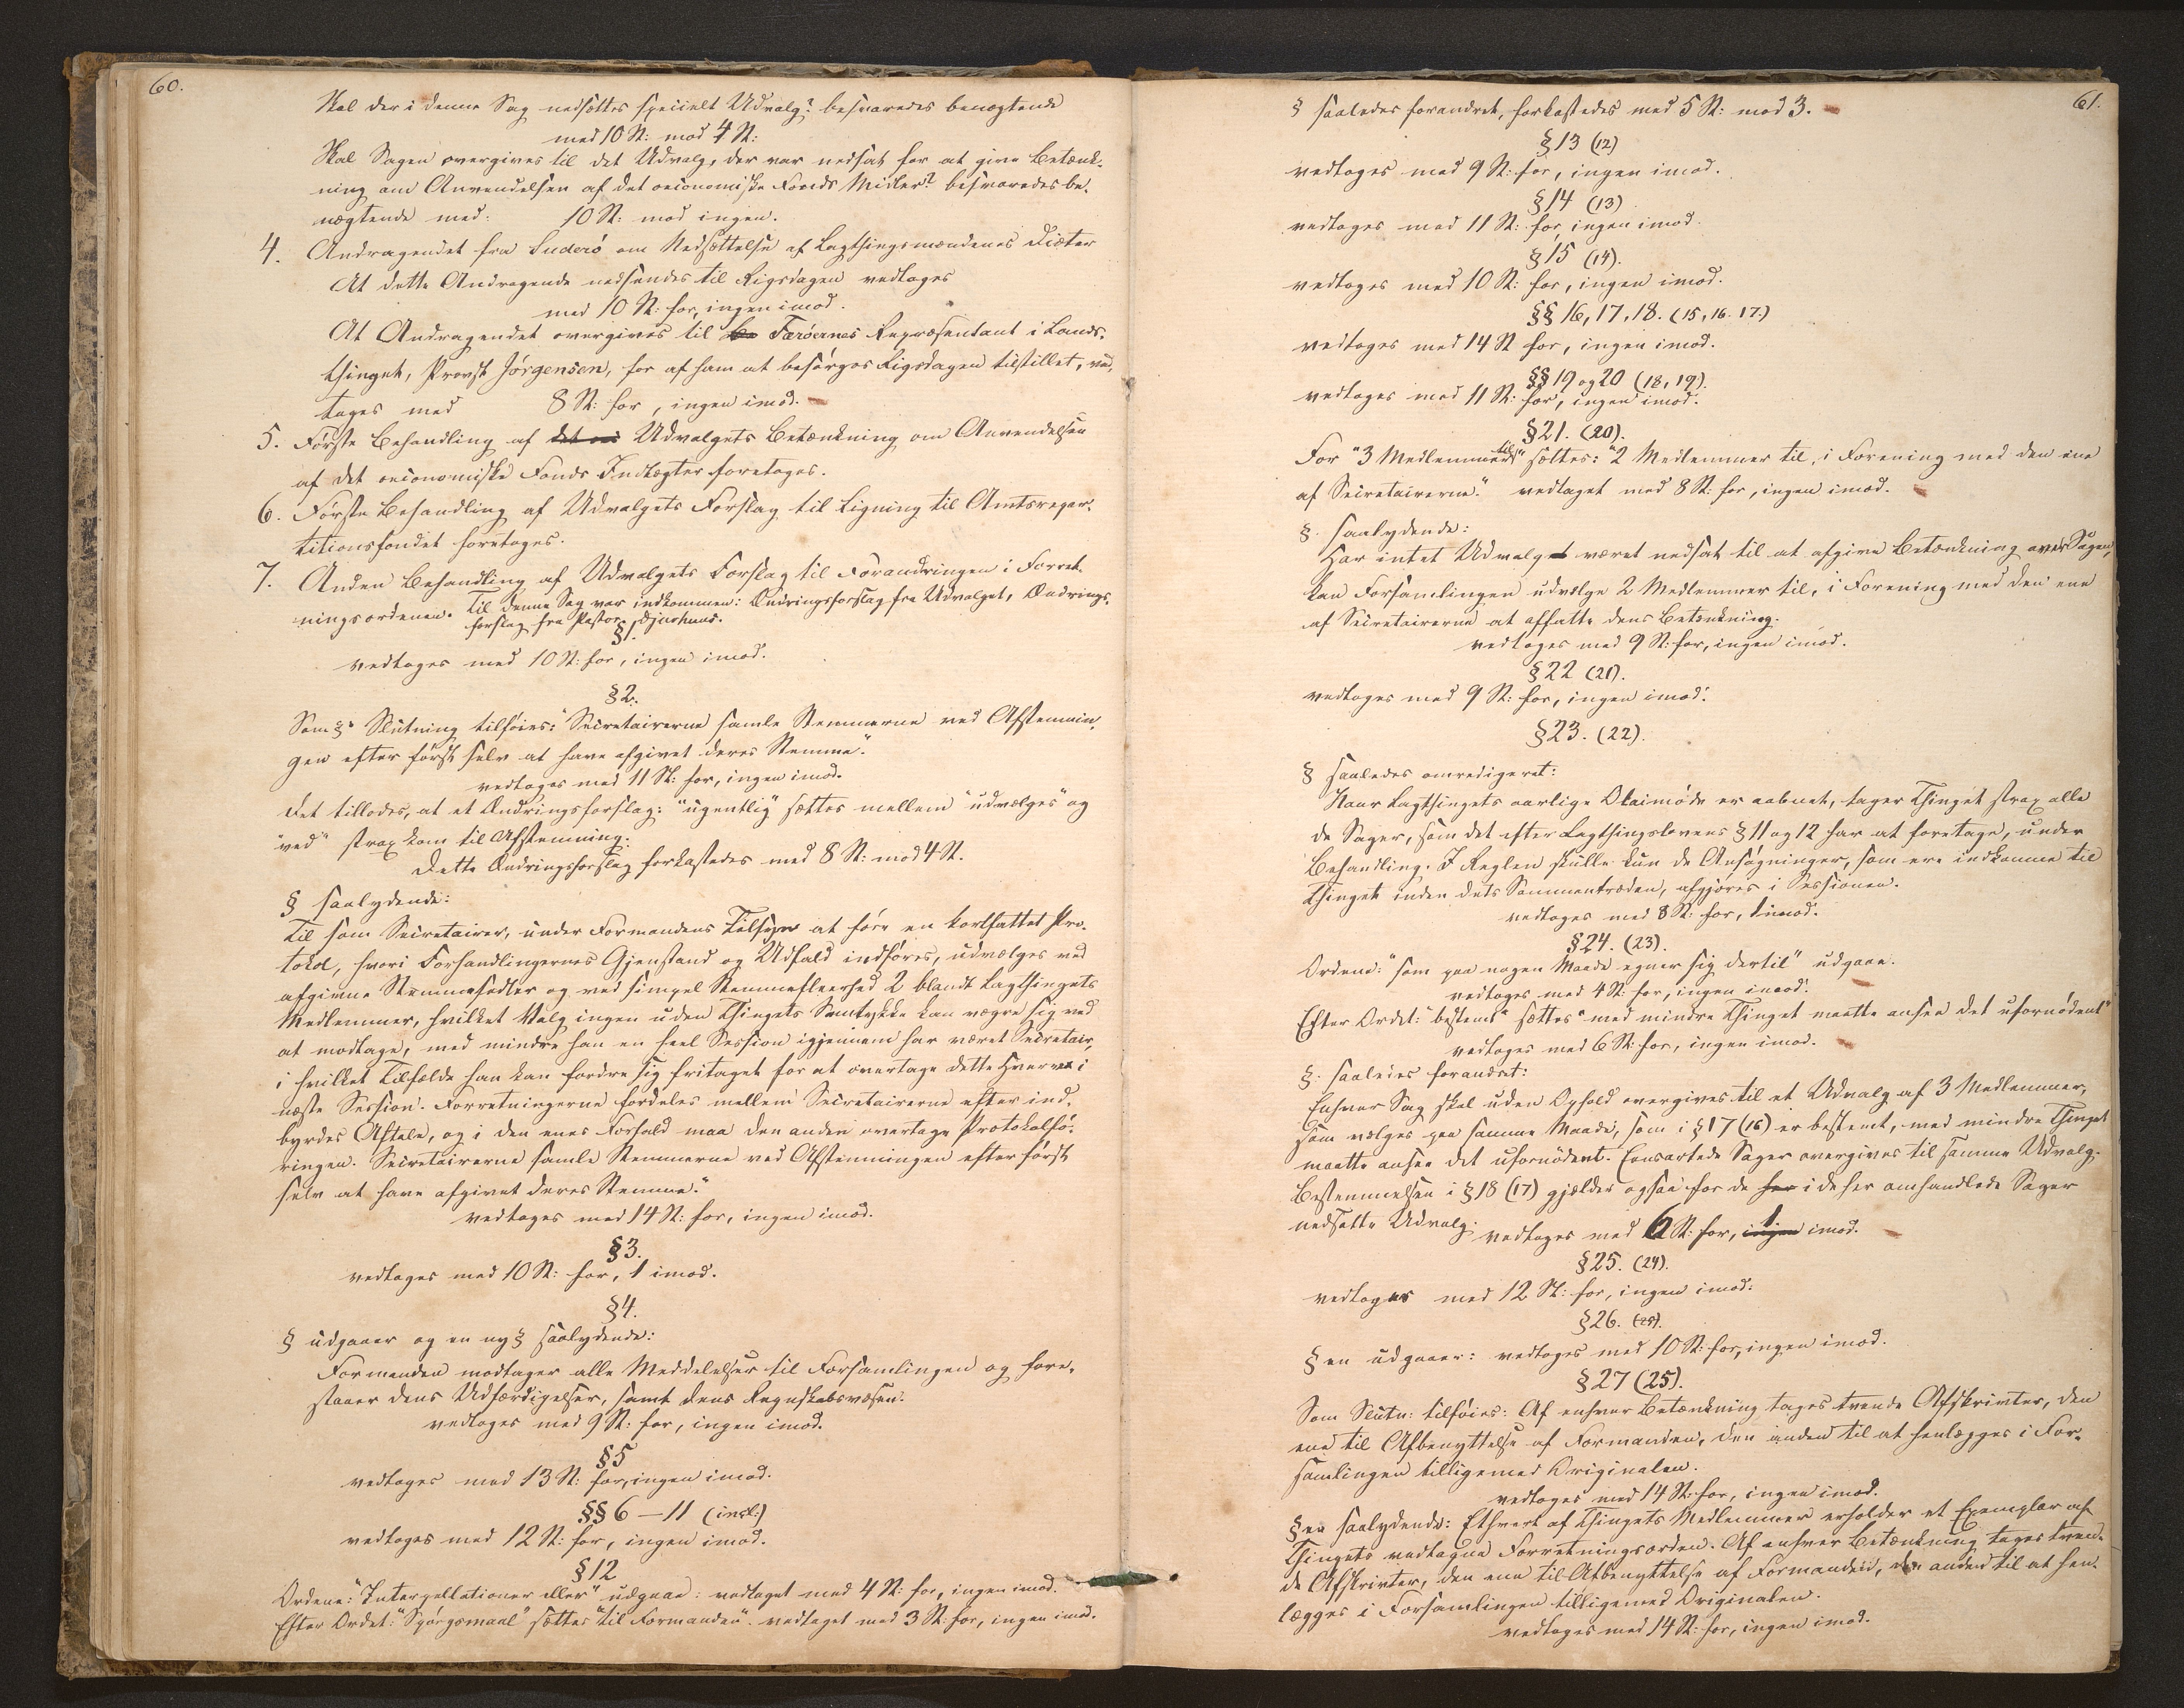 60.
Skal der i denne Sag nedsættes specielt Udvalg? besvaredes benægtende
med 10 St: mod 4 St:
Skal Sagen overgives til det Udvalg, der var nedsat for at give Betænk-
ning om Anvendelsen af det oeconomiske Fonds Midler? besvaredes be-
nægtende med: 10 St: mod ingen.
4. Andragendet fra Suderö om Nedsættelse af Lagthingsmændenes Diæter
At dette Andragende nedsendes til Rigsdagen vedtoges
med 10 St: for, ingen imod.
At Andragendet overgives til Færöernes Repræsentant i Lands-
thinget, Provst Jörgensen, for af ham at besörges Rigsdagen tilstillet, ved-
toges med 8 St: for, ingen imod.
5. Förste Behandling af Udvalgets Betænkning om Anvendelsen
af det oeconomiske Fonds Indtægter foretoges.
6. Förste Behandling af Udvalgets Forslag til Ligning til Amtsrepar-
titionsfondet foretoges.
7. Anden Behandling af Udvalgets Forslag til Forandringen i Forret-
ningsordenen. Til denne Sag var indkommen: Ændringsforslag fra Udvalget, Ændrings-
forslag fra Pastor Djurhuus.
§1.
vedtoges med 10 St: for, ingen imod.
§2.
Som §s Slutning tilföies: "Secretairerne samle Stemmerne ved Afstemnin-
gen efter först selv at have afgivet deres Stemme."
vedtoges med 11 St: for, ingen imod.
Det tillodes, at et Ændringsforslag: "ugentlig" sættes mellem "udvælges" og
"ved" strax kom til Afstemning.
Dette Ændringsforslag forkastedes med 8 St: mod 4 St.
§ saalydende:
Til som Secretairer, under Formandens Tilsyn at före en kortfattet Pro-
tokol, hvori Forhandlingernes Gjenstand og Udfald indföres, udvælges ved
afgivne Stemmesedler og ved simpel Stemmefleerhed 2 blandt Lagthingets
Medlemmer, hvilket Valg ingen uden Thingets Samtykke kan vægre sig ved
at modtage, med mindre han en heel Session igjennem har været Secretair
i hvilket Tilfælde han kan fordre sig fritaget for at overtage dette Hverv i
næste Session. Forretningerne fordeles mellem Secretairerne efter ind-
byrdes Aftale, og i den enes Forfald maa den anden overtage Protokolfö-
ringen. Secretairerne samle Stemmerne ved Afstemningen efter först
selv at have afgivet deres Stemme."
vedtoges med 14 St: for, ingen imod.
§3.
vedtoges med 10 St: for, 1 imod.
§4.
§ udgaaer og en ny § saalydende:
Formanden modtager alle Meddelelser til Forsamlingen og fore-
staaer dens Udfærdigelser, samt dens Regnskabsvæsen.
vedtoges med 9 St: for, ingen imod.
§5
vedtoges med 13 St: for, ingen imod.
§§ 6 — 11 (incl:)
vedtoges med 12 St: for, ingen imod.
§12
Ordene: "Interpellationer eller" udgaae: vedtaget med 4 St: for, ingen imod.
Efter Ordet: "Spörgsmaal" sættes "til Formanden". vedtaget med 3 St: for, ingen imod.
61.
§ saaledes forandret, forkastedes med 5 St: mod 3.
§13 (12)
vedtoges med 9 St: for, ingen imod.
§14 (13)
vedtoges med 11 St: for, ingen imod.
§15 (14).
vedtoges med 10 St: for, ingen imod.
§§ 16, 17, 18. (15, 16. 17.)
vedtoges med 14 St for, ingen imod.
§§ 19 og 20 (18, 19).
vedtoges med 11 St: for, ingen imod.
§21. (20).
For "3 Medlemmer til" sættes: "2 Medlemmer til, i Forening med den ene
af Secretairerne." vedtaget med 8 St: for, ingen imod.
§. saalydende:
Har intet Udvalg været nedsat til at afgive Betænkning over Sagen,
kan Forsamlingen udvælge 2 Medlemmer til, i Forening med den ene
af Secretairerne at affatte dens Betænkning.
vedtoges med 9 St: for, ingen imod.
§22 (21).
vedtoges med 9 St: for, ingen imod.
§23. (22).
§ saaledes omredigeret:
Naar Lagthingets aarlige Olaimöde er aabnet, tager Thinget strax alle
de Sager, som det efter Lagthingslovens § 11 og 12 har at foretage, under
Behandling. I Reglen skulle kun de Ansögninger, som ere indkomne til
Thinget inden dets Sammentræden, afgjöres i Sessionen.
vedtoges med 8 St: for, 1 imod.
§24. (23).
Ordene: "som paa nogen Maade egner sig dertil" udgaae.
vedtoges med 4 St: for, ingen imod.
Efter Ordet: "bestemt" sættes "med mindre Thinget maatte ansee det ufornödent"
vedtoges med 6 St: for, ingen imod.
§. saaledes forandret:
Enhver Sag skal uden Ophold overgives til et Udvalg af 3 Medlemmer,
som vælges paa samme Maade, som i § 17 (16) er bestemt, med mindre Thinget
maatte ansee det ufornödent. Eensartede Sager overgives til samme Udvalg.
Bestemmelsen i § 18 (17) gjælder ogsaa for de i de her omhandlede Sager
nedsatte Udvalg.
vedtoges med 6 St: for, 1 imod.
§25. (24).
vedtoges med 12 St: for, ingen imod.
§26. (25).
§en udgaaer: vedtoges med 10 St: for, ingen imod.
§27 (25).
Som Slutn: tilföies: Af enhver Betænkning tages tvende Afskrivter, den
ene til Afbenyttelse af Formanden, den anden til at henlægges i For-
samlingen tilligemed Originalen.
vedtoges med 14 St: for, ingen imod.
§en saalydende: Ethvert af Thingets Medlemmer erholder et Exemplar af
Thingets vedtagne Forretningsorden. Af enhver Betænkning tages tven-
de Afskrivter, den ene til Afbenyttelse af Formanden, den anden til at hen-
lægges i Forsamlingen tilligemed Originalen.
vedtoges med 14 St: for, ingen imod.